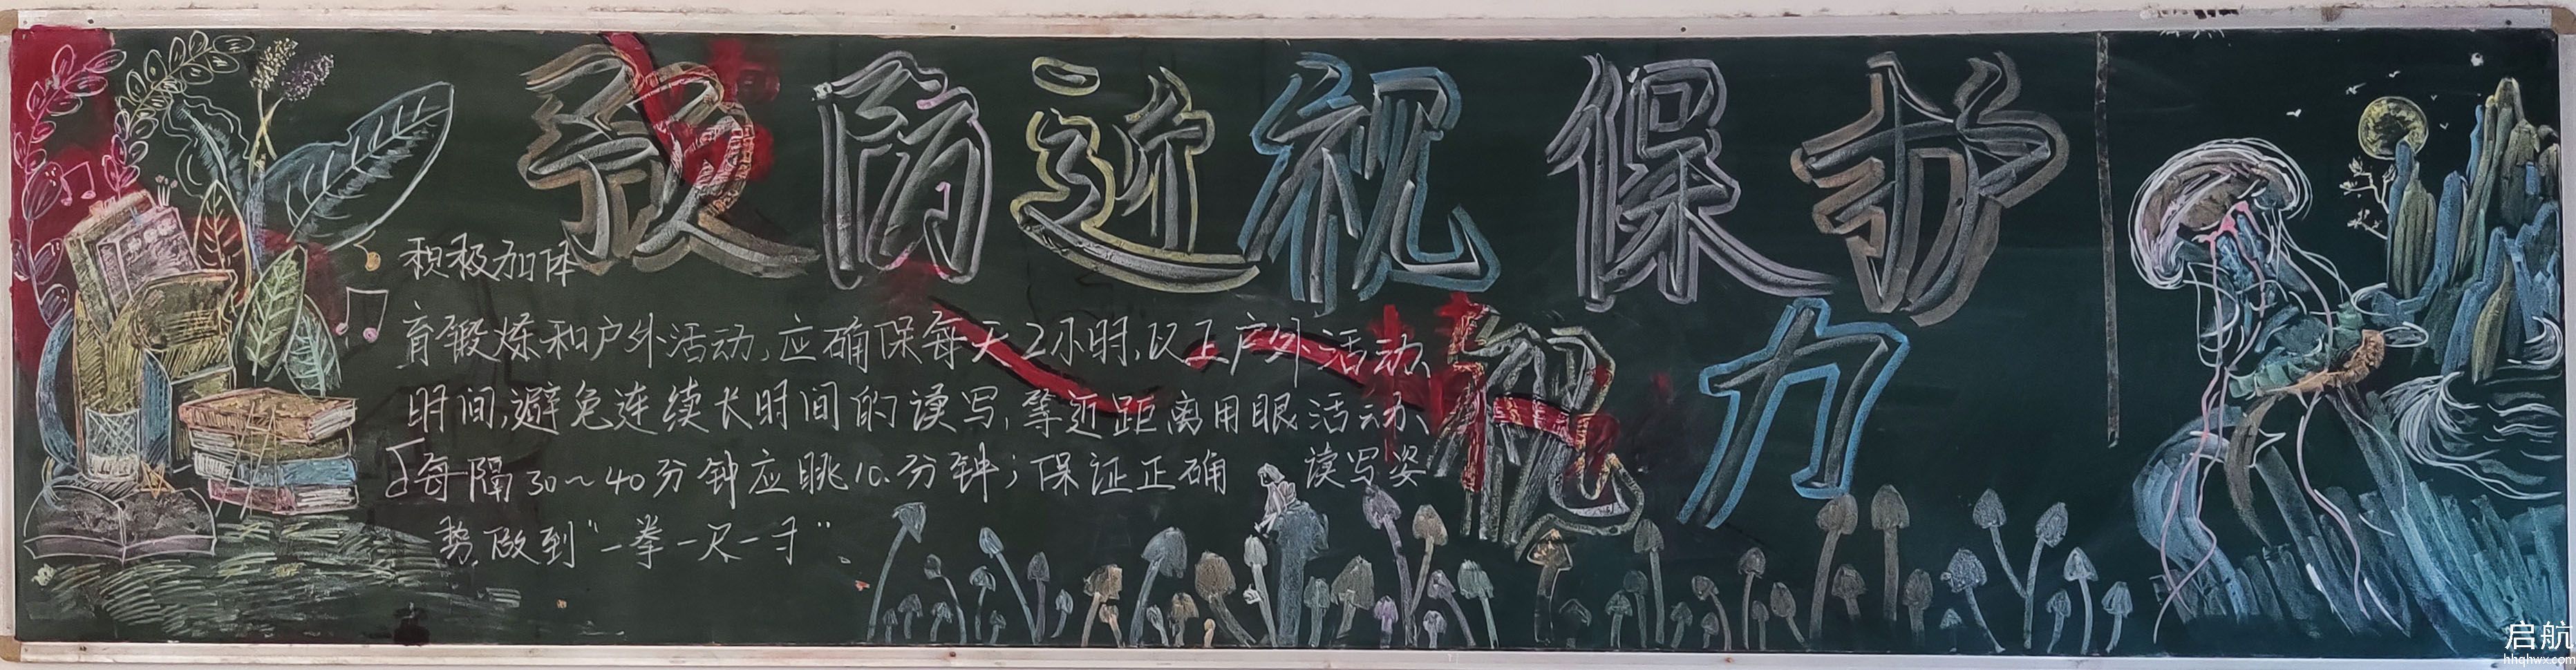 预防近视 保护
视力
积极加体
育锻炼和户外活动,应确保每天2小时,以上户外活动
时间,避免连续长时间的读写,等近距离用眼活动、
每隔30～40分钟应眺10分钟;保证正确 读写姿
势,做到"一拳一尺一寸"
启航
hhqhwx.com